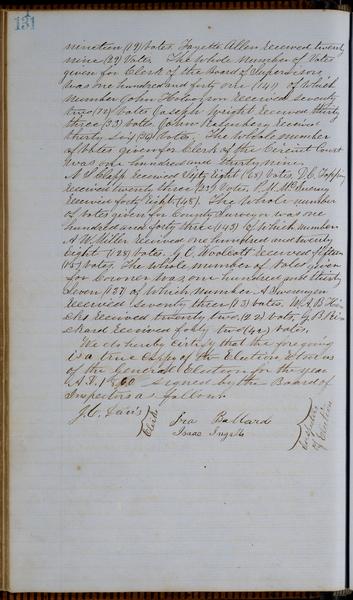 131
nineteen (19) Votes. Fayette Allen Received twenty
nine (29) Votes. The Whole Number of Votes
given for Clerk of the Board of Supervisors
was one hundred and forty one (141) of Which
number John received seventy
two (72) Votes Joseph Wright Received thirty
three (33) Votes, John Received
thirty Six (36) Votes. The Whole number
of Votes given for Clerk of the Circuit Court
was one hundred and thirty nine
N P Clapp Received Sixty Eight (68) Votes, D. C.
Received twenty three (23) Votes, P. M.
Received forty Eight (48). The Whole number
of Votes given for County Surveyor was one
hundred and forty three (143) of Which number
A W Miller Received one hundred and twenty
Eight (128) Votes. J. C. Woolcott Received fifteen
(15) Votes. The Whole number of Votes given
for Coroner was one hundred and thirty
Seven (137) of Which number A
Received Seventy three (73) Votes, W. A. B.
Received twenty two (22) Votes, G. B.
Received forty two (42) Votes.
We do hereby Certify that the foregoing
is a true Copy of the Election
of the General Election for the year
A.D. 1860 signed by the Board of
Inspectors as follows
J. C. Davis } Clerk
Ira Ballard
Isaac Ingalls
} of Election